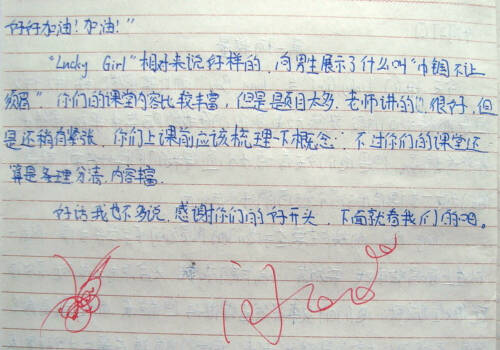 好好加油!加油!”
“Lucky Girl”相对来说好样的,向男生展示了什么叫“巾帼不让
须眉”。你们的课堂内容比较丰富,但是是题目太多.老师讲的很好,但
是还稍有紧张.你们上课前应该梳理一下概念.不过你们的课堂还
算是条理分清.内容丰富.
好话我也不多说,感谢你们的好开头,下面就看我们的吧。